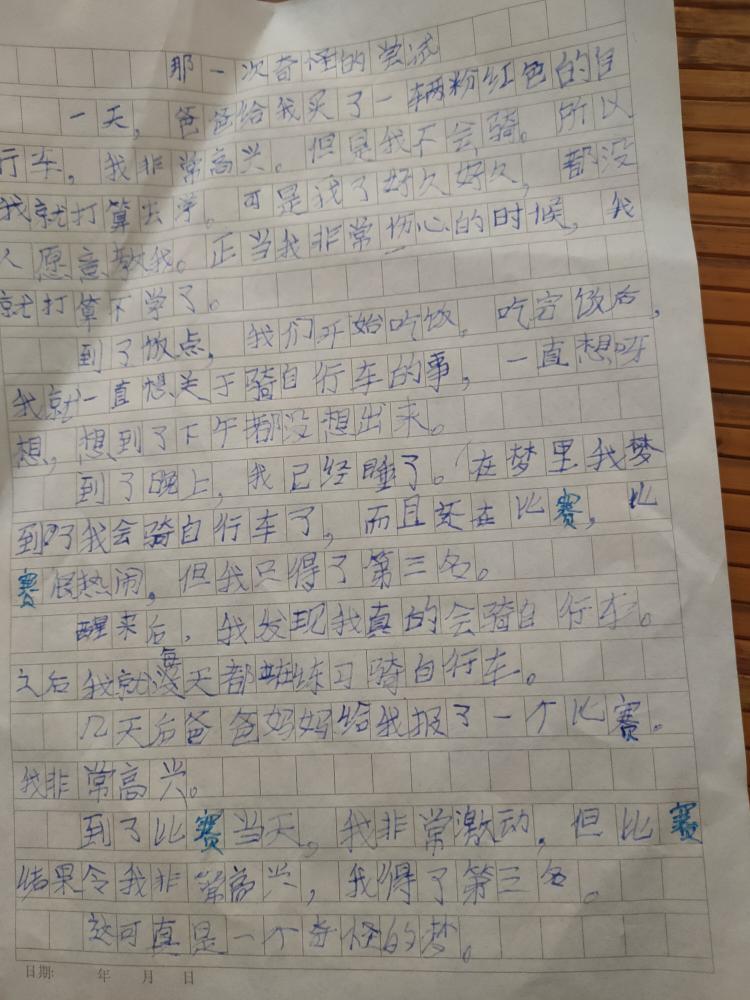 那一次奇怪的尝试
一天，爸爸给我买了一辆粉红色的自
行车，我非常高兴。但是我不会骑。所以
我就打算去学。可是找了好久好久，都没
人愿意教我。正当我非常伤心的时候，我
就打算不学了。
到了饭点，我们开始吃饭。吃完饭后，
我就一直想关于骑自行车的事，一直想呀
想，想到了下午都没想出来。
到了晚上，我已经睡了。在梦里我梦
到了我会骑自行车了，而且还在比赛，比
赛很热闹，但我只得了第三名。
醒来后，我发现我真的会骑自行车。
之后我就每天都在练习骑自行车。
几天后爸爸妈妈给我报了一个比赛。
我非常高兴。
到了比赛当天，我非常激动，但比赛
结果令我非常高兴，我得了第三名。
这可真是一个奇怪的梦。
日期: 年 月 日